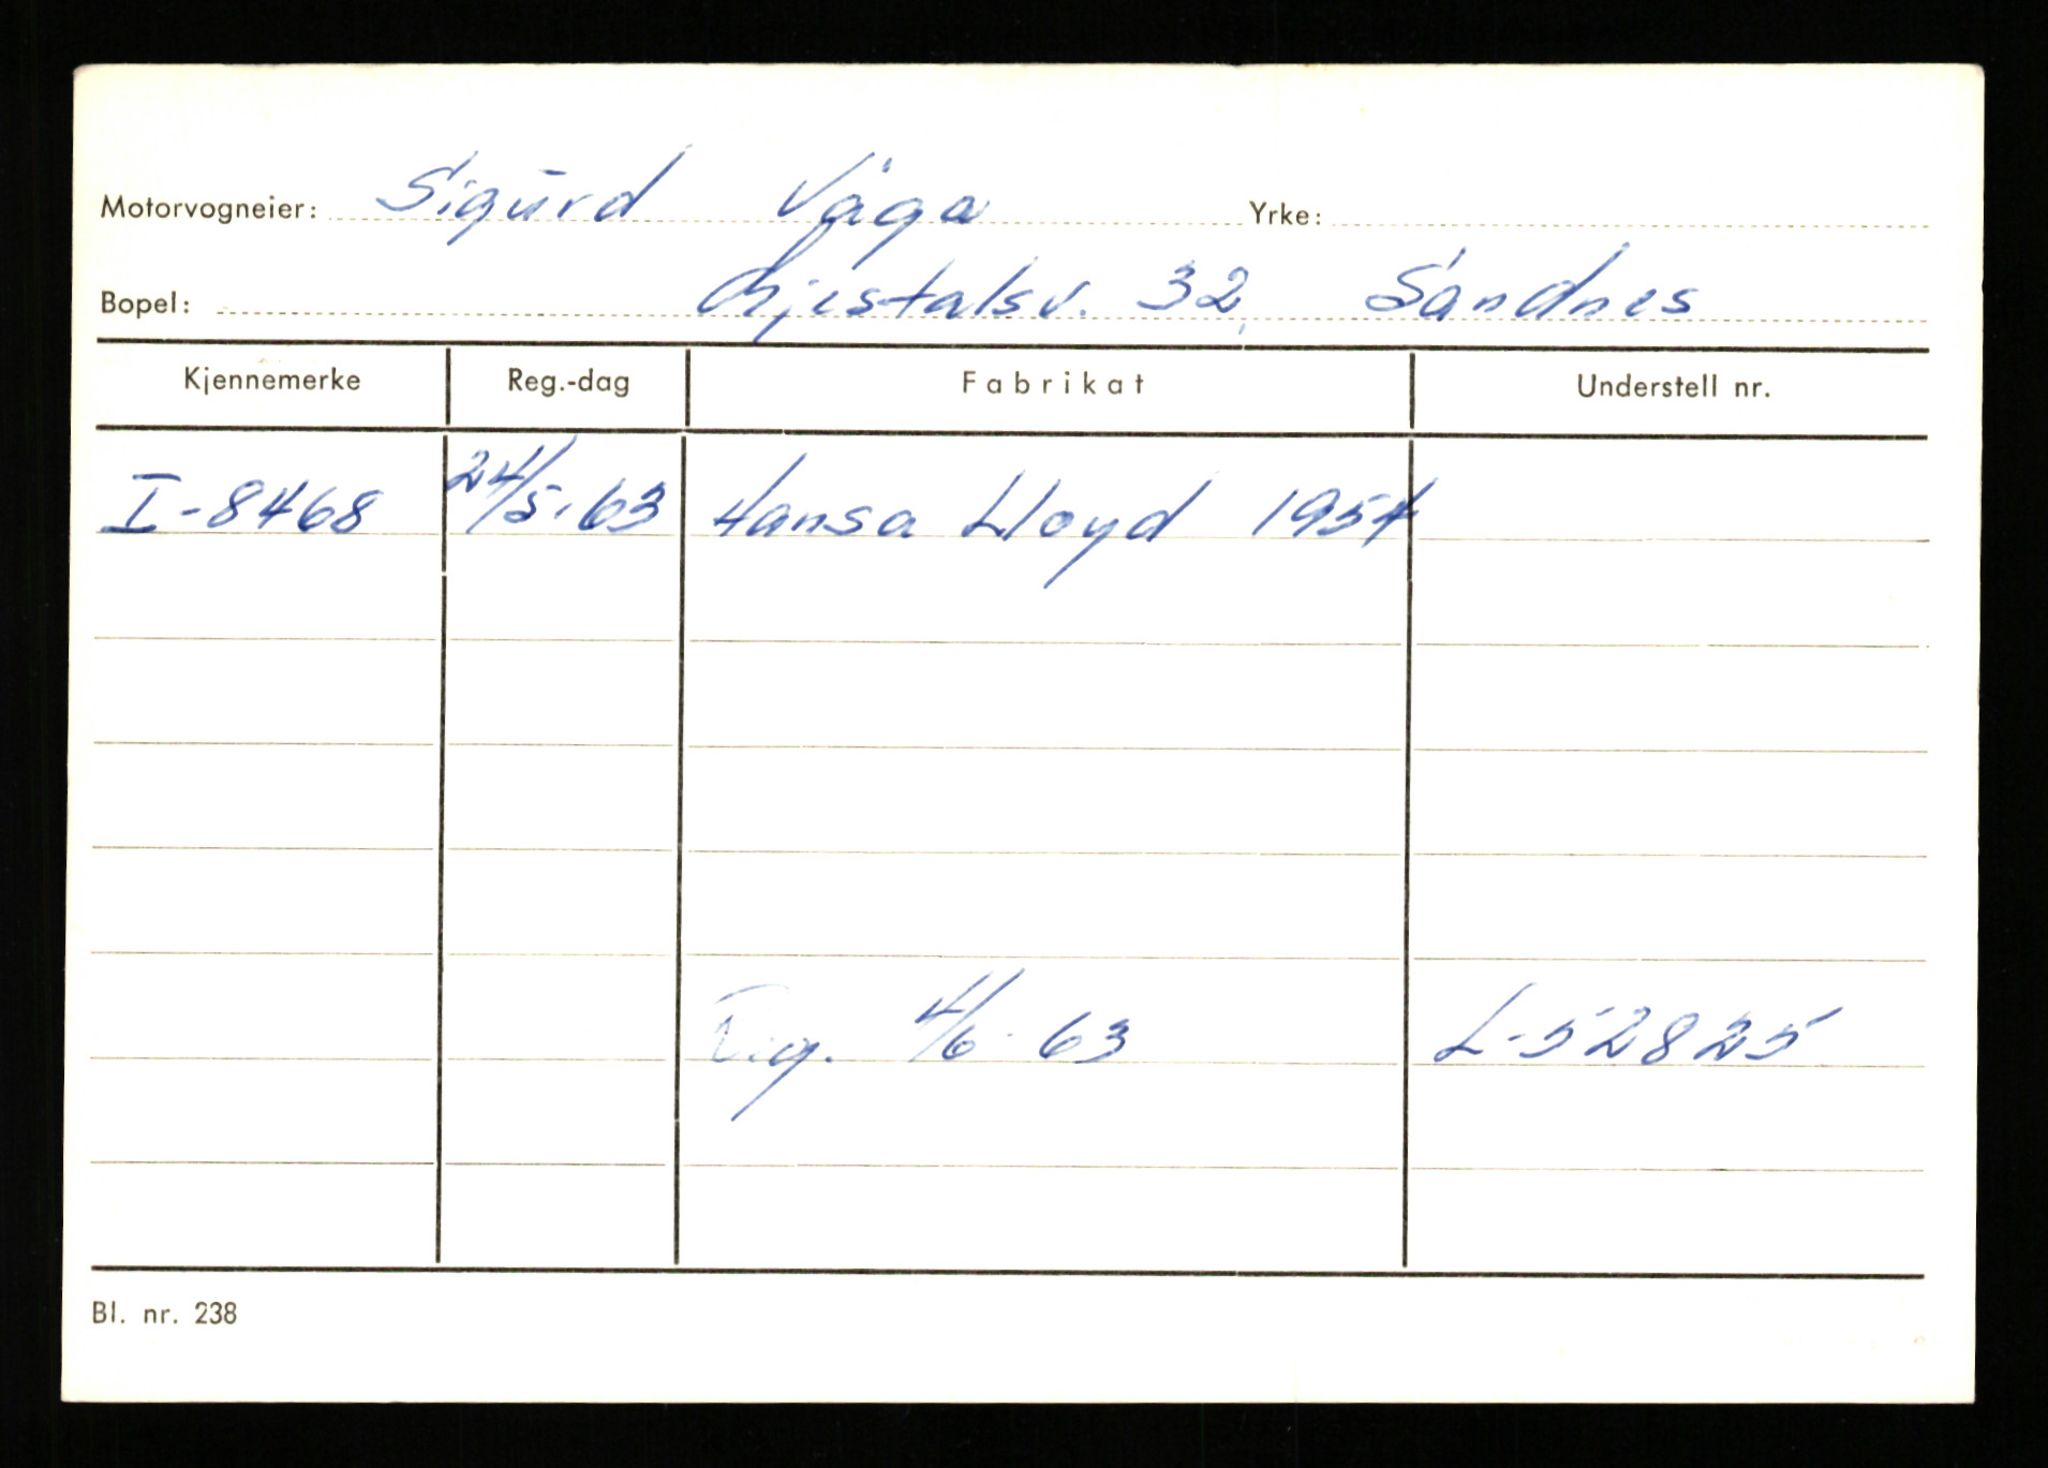 Motorvogneier: Sigurd Våga Yrke:
Bopel: Gjestalsv. 32, Sandnes
Kjennemerke Reg.-dag Fabrikat Understell nr.
I-8468 24/5.63 Hansa Lloyd 1954
4/6-63 L-52825
Bl. nr. 238